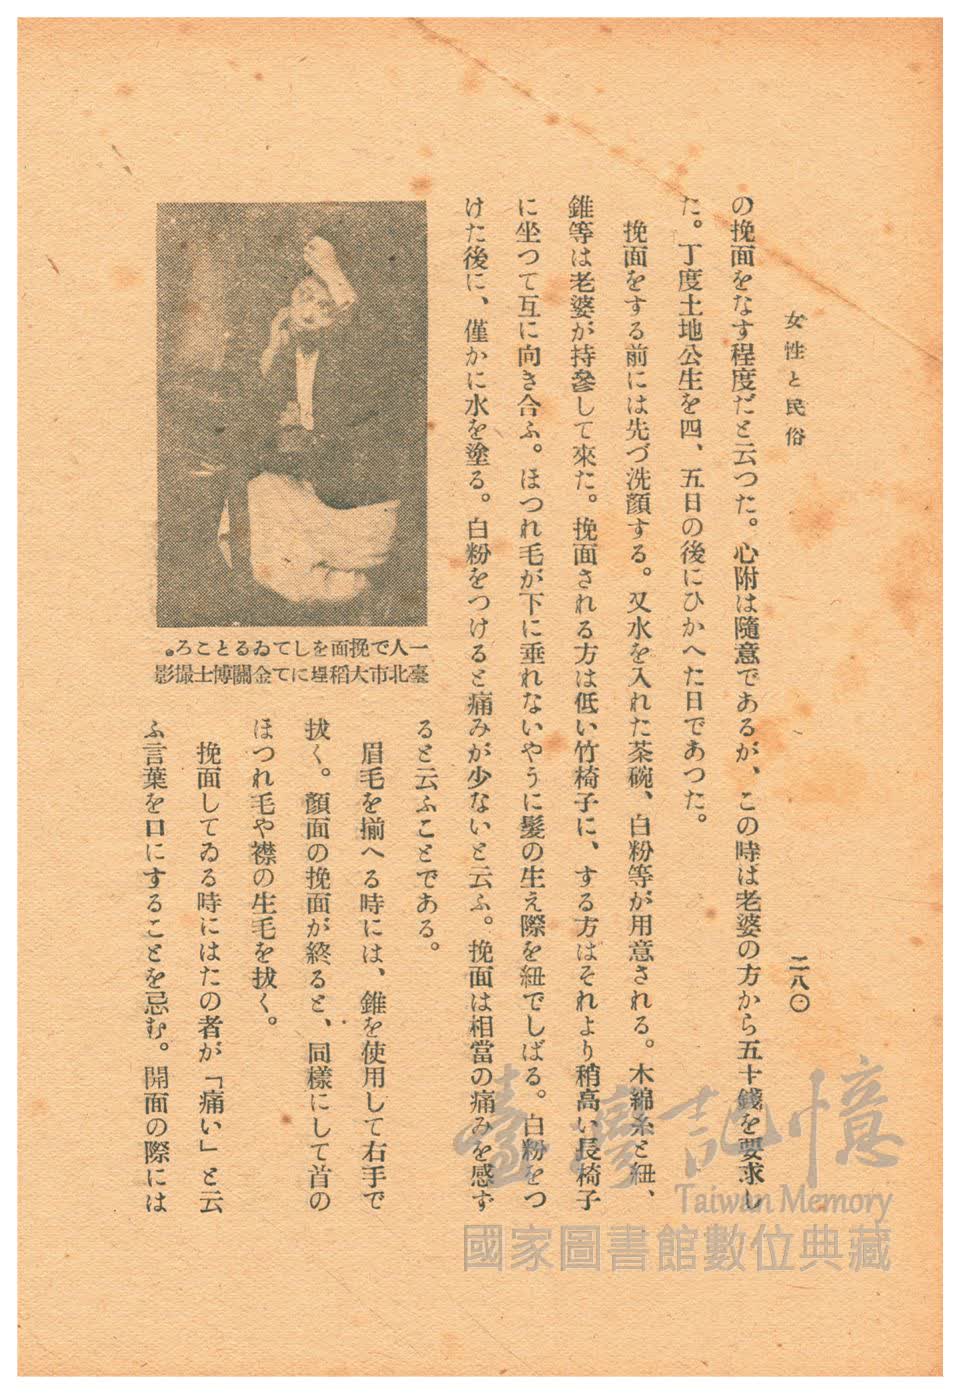 女性と民俗
二八〇
の挽面をなす程度だと云つた。心附は隨意であるが、この時は老婆の方から五十錢を要求し
た。丁度土地公生を四、五日の後にひかへた日であつた。
挽面をする前には先づ洗顏する。又水を入れた茶碗、白粉等が用意される。木綿糸と紐、
錐等は老婆が持參して來た。挽面される方は低い竹椅子に、する方はそれより稍高い長椅子
に坐つて互に向き合ふ。ほつれ毛が下に垂れないやうに髮の生え際を紐でしばる。白粉をつ
けた後に、僅かに水を塗る。白粉をつけると痛みが少ないと云ふ。挽面は相當の痛みを感ず
ると云ふことである。
眉毛を揃へる時には、錐を使用して右手で
拔く。顏面の挽面が終ると、同樣にして首の
ほつれ毛や襟の生毛を拔く。
挽面してゐる時にはたの者が「痛い」と云
ふ言葉を口にすることを忌む。開面の際には
一人で挽面をしてゐるところ。
臺北市大稻埕にて金關博士撮影
臺灣記憶
Taiwan Memory
國家圖書館數位典藏